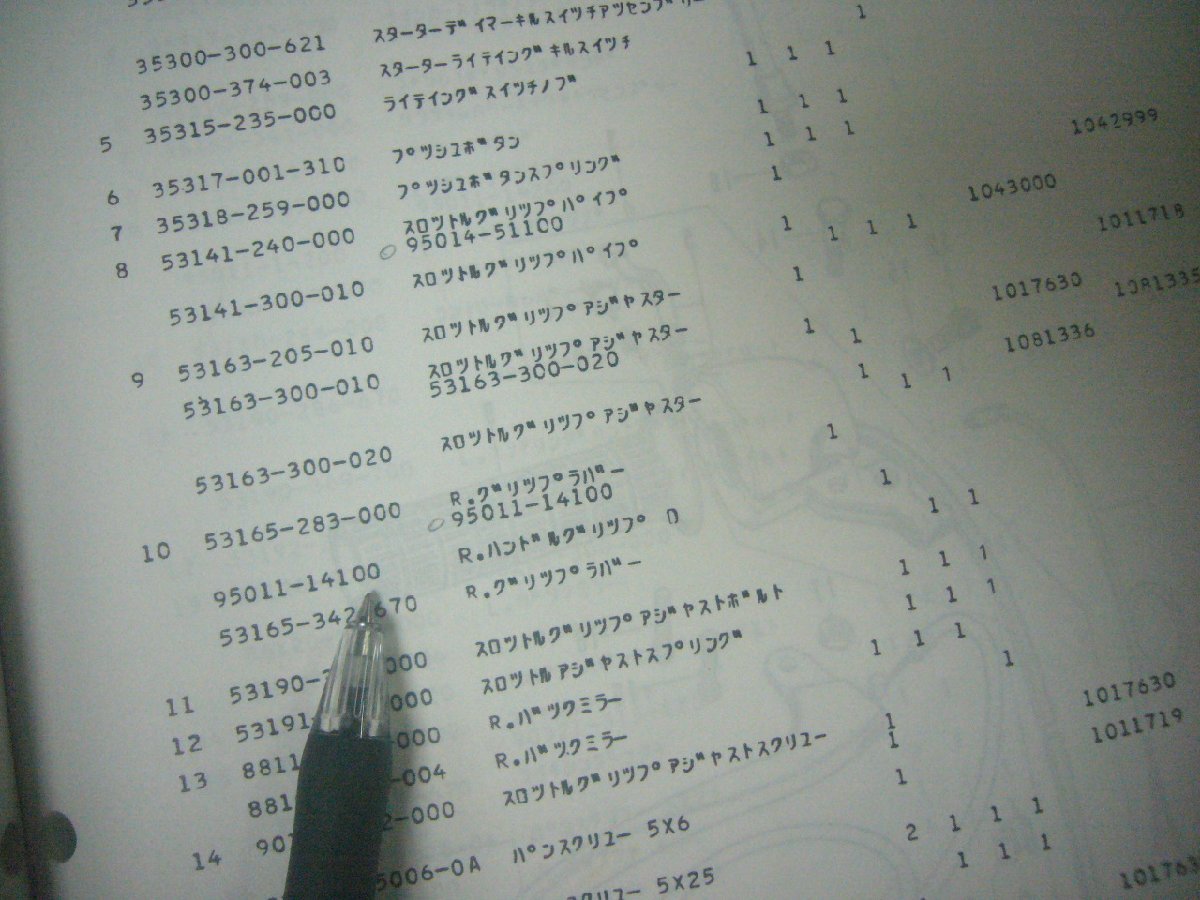 35300-300-621 スターターデイマーキルスイツチアツセンブリー 1
35300-374-003 スターターライテイングキルスイツチ 1 1 1
5 35315-235-000 ライテイングスイツチノブ 1 1 1
6 35317-001-310 プツシユボタン 1 1 1
7 35318-259-000 プツシユボタンスプリング 1 1042999
8 53141-240-000 スロツトルグリツプパイプ
95014-51100 1 1043000
53141-300-010 スロツトルグリツプパイプ 1 1 1 1011718
9 53163-205-010 スロツトルグリツプアジヤスター 1 1017630 1081335
53163-300-010 スロツトルグリツプアジヤスター 1 1 1081336
53163-300-020
53163-300-020 スロツトルグリツプアジヤスター 1 1 1
10 53165-283-000 R.グリツプラバー 1
95011-14100
95011-14100 R.ハンドルグリツプ D 1
53165-342-670 R.グリツプラバー 1 1
11 53190- 000 スロツトルグリツプアジヤストボルト 1 1 1
12 53191- 000 スロツトルアジヤストスプリング 1 1 1
13 8811 -000 R.バツクミラー 1 1 1
881 -004 R.バツクミラー 1
14 90 2-000 スロツトルグリツプアジヤストスクリユー 1 1017630
1 1011719
1
5006-0A パンスクリユー 5X6 2 1 1 1
スクリユー 5X25 1 1 1